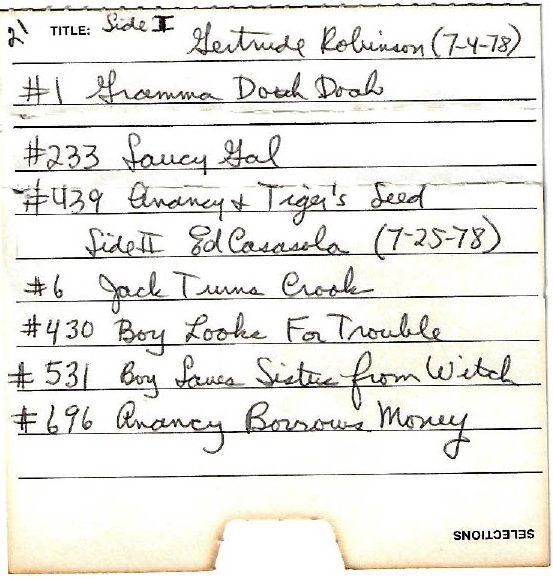 2' TITLE: Side I
Gertrude Robinson (7-4-78)
#1 Gramma Dooh Dooh
#233 Saucy Gal
#439 Anancy & Tiger's Seed
Side II Ed Casasola (7-25-78)
#6 Jack Turns Crook
#430 Boy Looks For Trouble
#531 Boy Saves Sister from Witch
#696 Anancy Borrows Money
SELECTIONS